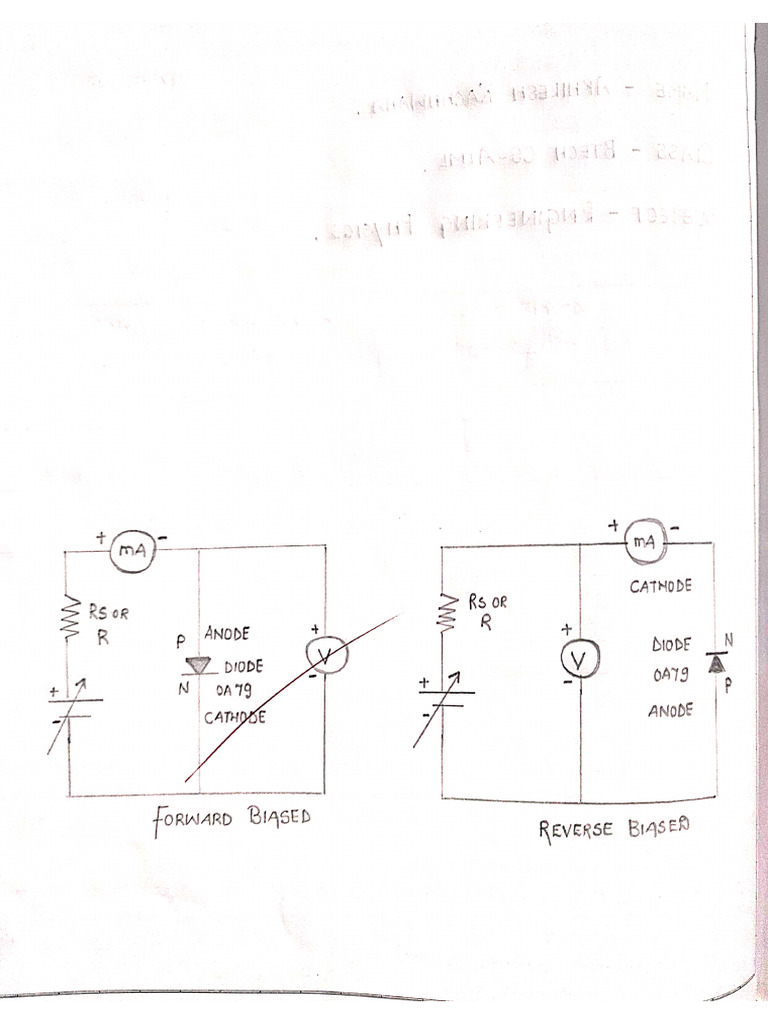 + mA -
RS OR
R
P ANODE
DIODE
N OA79
CATHODE
+
V
-
+
-
FORWARD BIASED
+ mA -
CATHODE
RS OR
R
+
V
-
DIODE N
OA79
P
ANODE
+
-
REVERSE BIASED